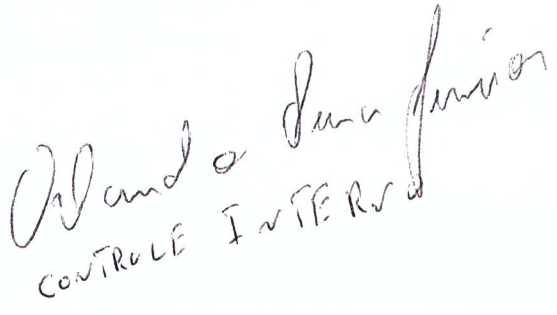 Orlando Sena Junior
CONTROLE INTERNO